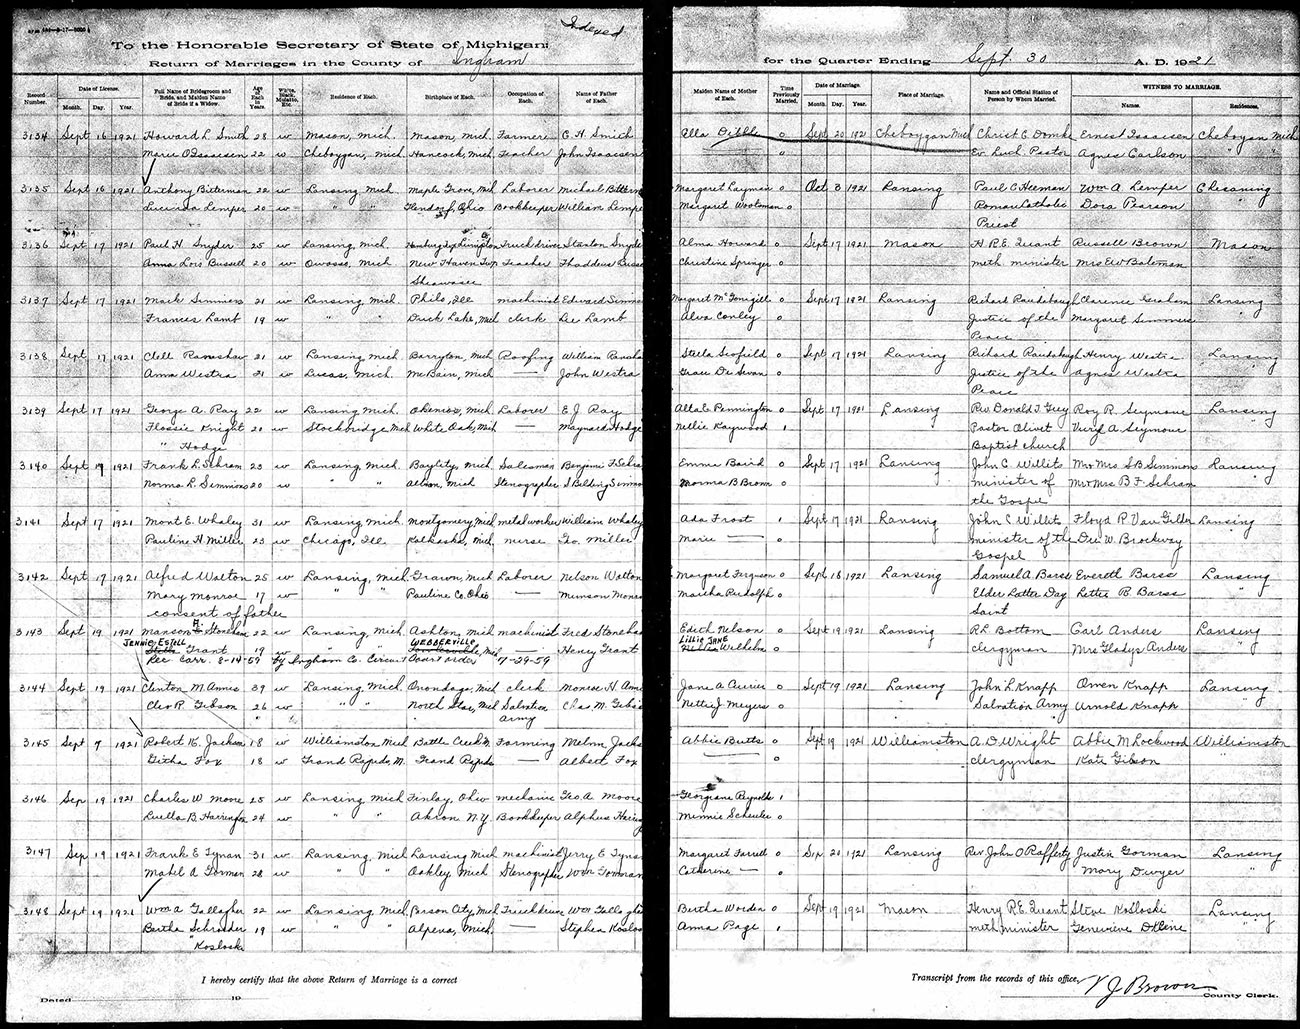 Indexed
To the Honorable Secretary of State of Michigan:
Return of Marriages in the County of Ingham
for the Quarter Ending Sept. 30 A. D. 1921
Record Number. | Date of License. Month. Day. Year. | Full Name of Bridegroom and Bride, and Maiden Name of Bride if a Widow. | Age of Each in Years. | White, Black, Mulatto, Etc. | Residence of Each. | Birthplace of Each. | Occupation of Each. | Name of Father of Each. | Maiden Name of Mother of Each. | Time Previously Married. | Date of Marriage. Month. Day. Year. | Place of Marriage. | Name and Official Station of Person by Whom Married. | WITNESS TO MARRIAGE. Names. Residences.
3134 Sept 16 1921 Howard L. Smith 28 w Mason, Mich. Mason, Mich. Farmer C. H. Smith Ella Dibble 0 Sept 20 1921 Cheboygan Mich Christ C. Domke Ernest Isaacsen Cheboygan Mich
Marie O Isaacsen 22 w Cheboygan, Mich. Hancock, Mich Teacher John Isaacsen " 0 Ev. Luth. Pastor Agnes Carlson " "
3135 Sept 16 1921 Anthony Bitterman 22 w Lansing Mich. Maple Grove, Mich Laborer Michael Margaret Layman 0 Oct 3 1921 Lansing Paul C Heeman Wm A Lemper Chesaning
Lucinda Lemper 20 w " " Ohio Bookkeeper William Lemper Margaret 0 Roman Catholic Dora Pearson
Priest
3136 Sept 17 1921 Paul H Snyder 25 w Lansing, Mich. Truck driver Stanton Snyder Alma Howard 0 Sept 17 1921 Mason H. R.E. Quant Russell Brown Mason
Anna Lois Bussell 20 w Owosso, Mich New Haven Twp Teacher Thaddeus Christine Springer 0 meth. minister Mrs EW Bateman
Shiawassee
3137 Sept 17 1921 Mark Simmons 21 w Lansing Mich. Philo, Ill machinist Edward Margaret McGonigill 0 Sept 17 1921 Lansing Richard Raudabaugh Clarence Graham Lansing
Frances Lamb 19 w " " Duck Lake, Mich clerk Lee Lamb Alva Conley 0 Justice of the Margaret Simmons "
Peace
3138 Sept 17 1921 Clell Ranshaw 21 w Lansing, Mich. Barryton, Mich Roofing William Steela Scofield 0 Sept 17 1921 Lansing Richard Raudabaugh Henry Westra Lansing
Anna Westra 21 w Lucas, Mich. McBain, Mich — John Westra Grace De Swan 0 Justice of the Agnes Westra
Peace
3139 Sept 17 1921 George A. Ray 22 w Lansing Mich. Okemos, Mich Laborer E. J. Ray Alta E Pennington 0 Sept 17 1921 Lansing Rev Donald T. Grey Roy R. Seymour Lansing
Flossie Knight 21 w Stockbridge Mich White Oak, Mich — Maynard Hodge Nellie Haywood 1 Pastor Olivet A. Seymour
" Hodge Baptist church
3140 Sept 17 1921 Frank L. Schram 23 w Lansing, Mich. Baycity, Mich. Salesman Emma Baird 0 Sept 17 1921 Lansing John C. Willits Mr Mrs S B Simmons Lansing
Norma L. Simmons 20 w " " Albion, Mich Stenographer Norma B Brown 0 minister of Mr Mrs B F Schram
the Gospel
3141 Sept 17 1921 Mont E. Whaley 31 w Lansing Mich. Montgomery, Mich metal worker William Whaley Ada Frost 1 Sept 17 1921 Lansing John C Willits Floyd R Van Gilder Lansing
Pauline H Miller 23 w Chicago, Ill. Kalkaska, Mich. nurse Geo. Miller Marie — 0 minister of the Dee W. Brockway "
Gospel
3142 Sept 17 1921 Alfred Walton 25 w Lansing, Mich Grawn, Mich Laborer Nelson Walton Margaret Ferguson 0 Sept 18 1921 Lansing Samuel A Barss Evereth Barss Lansing
Mary Monroe 17 w " " Pauline Co. Ohio — Munson Monroe Martha Rudolph 0 Elder Latter Day Letta R. Barss "
consent of father Saint
3143 Sept 19 1921 Manson H. Stoneham 22 w Lansing, Mich. Ashton, Mich machinist Fred Edith Nelson 0 Sept 19 1921 Lansing R L Bottom Carl Anders Lansing
JENNIE ESTELL Grant 19 w " " WEBBERVILLE Mich — Henry Grant LILLIE JANE Wilhelm 0 clergyman Mrs Gladys Anders "
Rec Corr. 8-14-59 by Ingham Co. Circuit Court order 7-29-59
3144 Sept 19 1921 Clinton M. Annis 39 w Lansing Mich. Onondaga, Mich clerk Monroe H. Jane A Currier 0 Sept 19 1921 Lansing John L Knapp Owen Knapp Lansing
Cleo P. Gibson 26 w " " North Star, Mich Salvation Chas. M. Nettie J. Meyers 0 Salvation Army Arnold Knapp
Army
3145 Sept 7 1921 Robert K. Jackson 18 w Williamston Mich Battle Creek M. Farming Abbie Butts 0 Sept 19 1921 Williamston A. D Wright Abbie M Lockwood Williamston
Githa Fox 18 w Grand Rapids, M. Grand Rapids — Albert Fox — 0 clergyman Kate Gibson
3146 Sep 19 1921 Charles W Moore 25 w Lansing Mich Finlay, Ohio mechanic Geo. A Moore Georgiane Reynolds 1
Luella B. Harrington 24 w " " Akron N.Y. Bookkeeper Alpheus Minnie Scheuler 0
3147 Sep 19 1921 Frank E Tynan 31 w Lansing, Mich Lansing Mich machinist Jerry E Tynan Margaret Farrell 0 Sep 20 1921 Lansing Rev John O Rafferty Justin Gorman Lansing
Mabel A Gorman 28 w " " Oakley Mich Stenographer Wm Gorman Catherine — 0 Mary Dwyer "
3148 Sept 19 1921 Wm A Gallagher 22 w Lansing, Mich Carson City, Mich Truck driver Wm Gallagher Bertha Worden 0 Sept 19 1921 Mason Henry R.E. Quant Steve Kosloski Lansing
Bertha Schroeder 19 w " " Alpena, Mich. — Stephen Anna Page 1 meth minister Genevieve "
" Kosloski
I hereby certify that the above Return of Marriage is a correct
Transcript from the records of this office,
Dated 19
V J Brown County Clerk.